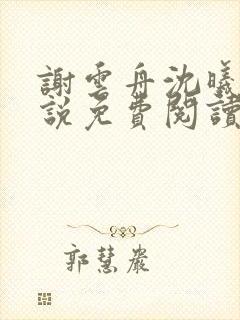 謝雲舟沈曦
說免費閱讀
郭慧嚴